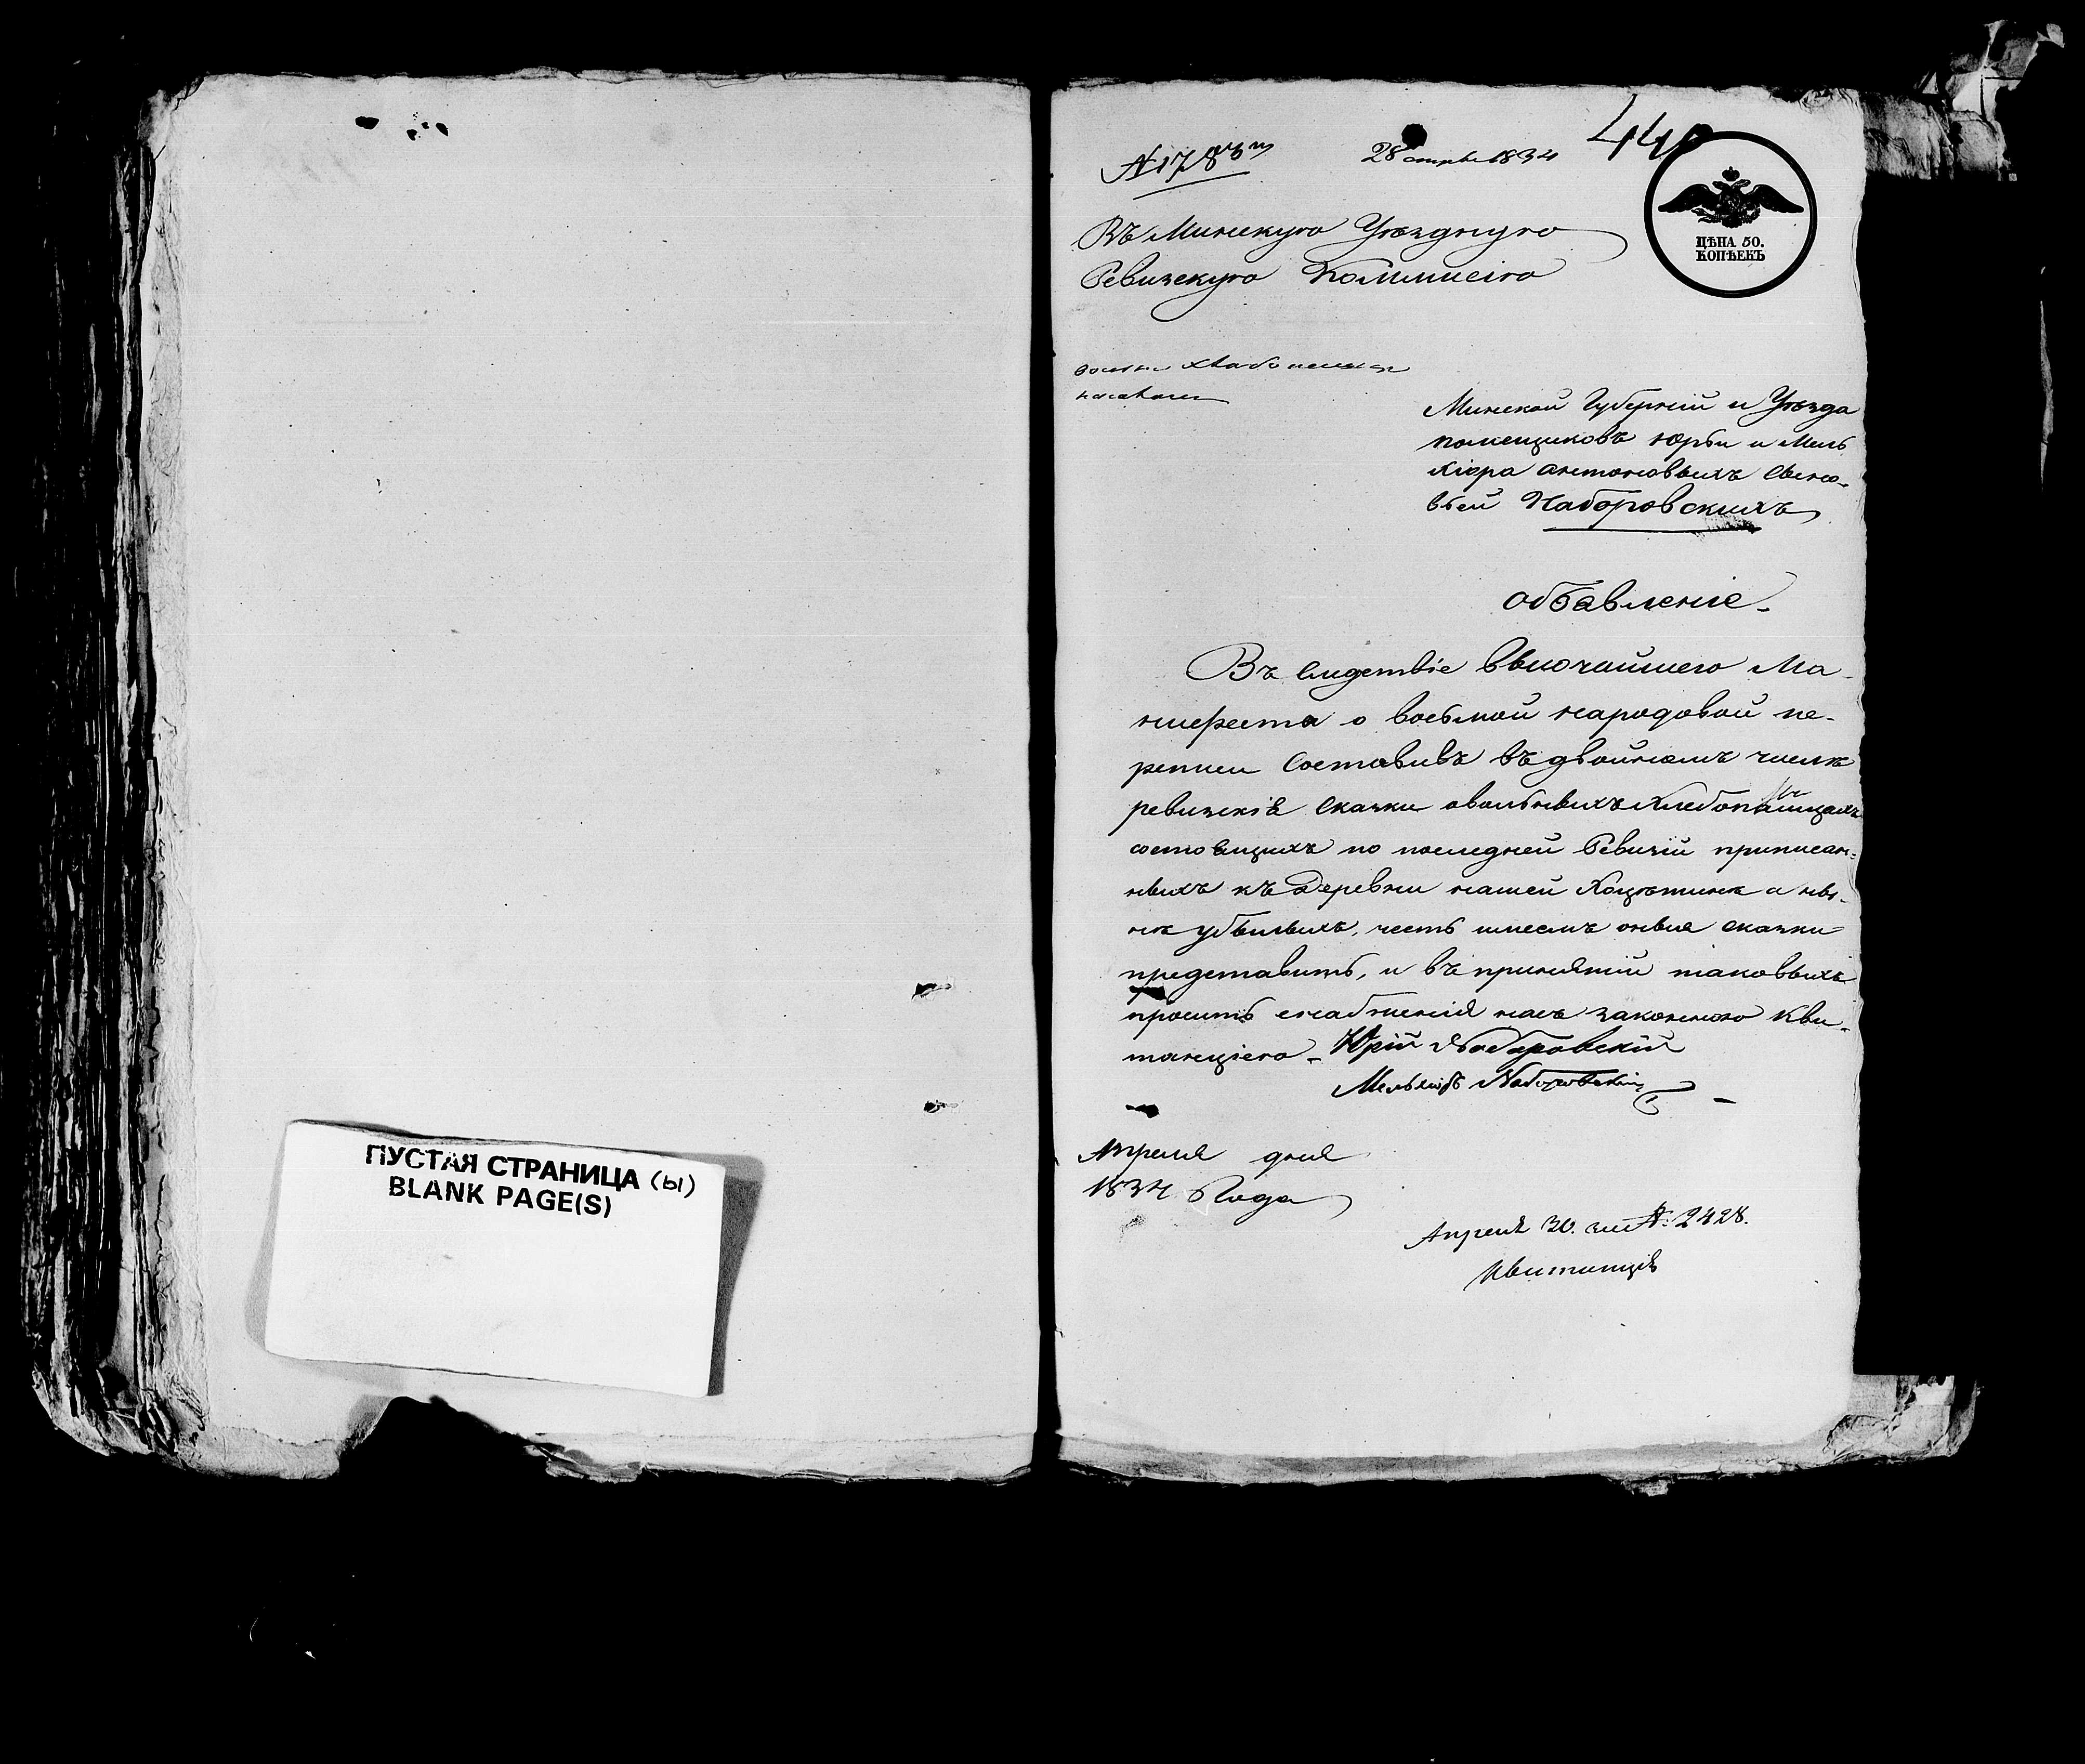 ПУСТАЯ СТРАНИЦА (Ы)
BLANK PAGE(S)
440
№ 1783
28 апрѣля 1834
ЦѢНА 50.
КОПѢЕКЪ
Въ Минскую Уѣздную
Ревизскую Коммисiю
Минской Губернiи и Уѣзда
помещиковъ Юрьи и Мель
хiора антоновыхъ сыно-
вьей Наборовскихъ
объавленiе
Въ следствiе высочайшего Ма-
нифеста о восьмой народовой пе-
реписи составивъ въ двойномъ числѣ
ревизскiя сказки о вольныхъ хлебопашцахъ
состоящихъ по последней Ревизiи приписан-
ныхъ къ деревни нашей а ны-
нѣ убылыхъ, честь имеемъ оныя сказки
представить, и въ принятiи таковыхъ
просить снабженiя насъ законною Кви-
танцiею Юрiй Наборовскiй
Мельхiоръ Наборовскiй
Апреля дня
1834 Года
Апреля 30. за №: 2428.
квитанцiя